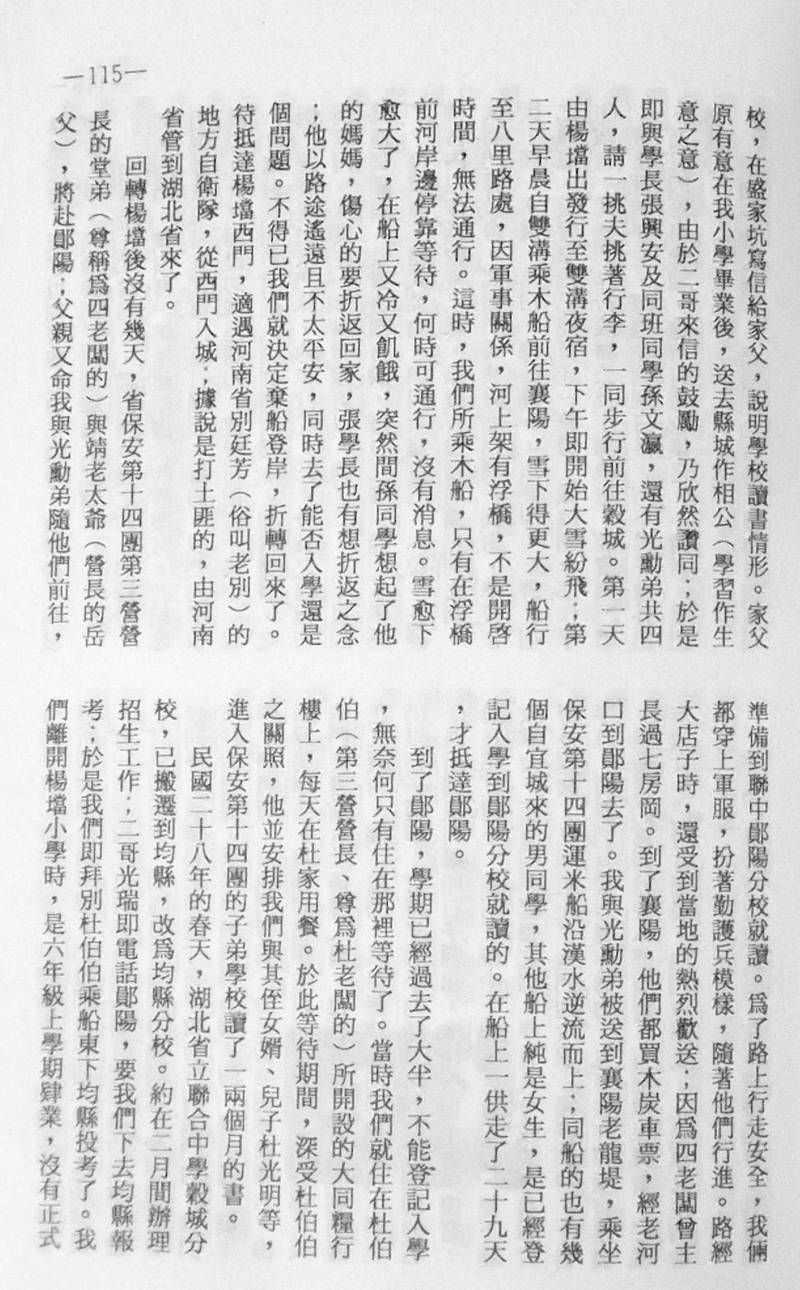 —115—
校，在盛家坑寫信給家父，說明學校讀書情形。家父
原有意在我小學畢業後，送去縣城作相公（學習作生
意之意），由於二哥來信的鼓勵，乃欣然讚同；於是
即與學長張興安及同班同學孫文瀛，還有光勳弟共四
人，請一挑夫挑著行李，一同步行前往穀城。第一天
由楊壋出發行至雙溝夜宿，下午即開始大雪紛飛；第
二天早晨自雙溝乘木船前往襄陽，雪下得更大，船行
至八里路處，因軍事關係，河上架有浮橋，不是開啓
時間，無法通行。這時，我們所乘木船，只有在浮橋
前河岸邊停靠等待，何時可通行，沒有消息。雪愈下
愈大了，在船上又冷又飢餓，突然間孫同學想起了他
的媽媽，傷心的要折返回家，張學長也有想折返之念
；他以路途遙遠且不太平安，同時去了能否入學還是
個問題。不得已我們就決定棄船登岸，折轉回來了。
待抵達楊壋西門，適遇河南省別廷芳（俗叫老別）的
地方自衛隊，從西門入城；據說是打土匪的，由河南
省管到湖北省來了。
回轉楊壋後沒有幾天，省保安第十四團第三營營
長的堂弟（尊稱爲四老闆的）與靖老太爺（營長的岳
父），將赴鄖陽；父親又命我與光勳弟隨他們前往，
準備到聯中鄖陽分校就讀。爲了路上行走安全，我倆
都穿上軍服，扮著勤護兵模樣，隨著他們行進。路經
大店子時，還受到當地的熱烈歡送；因爲四老闆曾主
長過七房岡。到了襄陽，他們都買木炭車票，經老河
口到鄖陽去了。我與光勳弟被送到襄陽老龍堤，乘坐
保安第十四團運米船沿漢水逆流而上；同船的也有幾
個自宜城來的男同學，其他船上純是女生，是已經登
記入學到鄖陽分校就讀的。在船上一供走了二十九天
，才抵達鄖陽。
到了鄖陽，學期已經過去了大半，不能登記入學
，無奈何只有住在那裡等待了。當時我們就住在杜伯
伯（第三營營長、尊爲杜老闆的）所開設的大同糧行
樓上，每天在杜家用餐。於此等待期間，深受杜伯伯
之關照，他並安排我們與其侄女婿、兒子杜光明等，
進入保安第十四團的子弟學校讀了一兩個月的書。
民國二十八年的春天，湖北省立聯合中學穀城分
校，已搬遷到均縣，改爲均縣分校。約在二月間辦理
招生工作；二哥光瑞即電話鄖陽，要我們下去均縣報
考；於是我們即拜別杜伯伯乘船東下均縣投考了。我
們離開楊壋小學時，是六年級上學期肄業，沒有正式